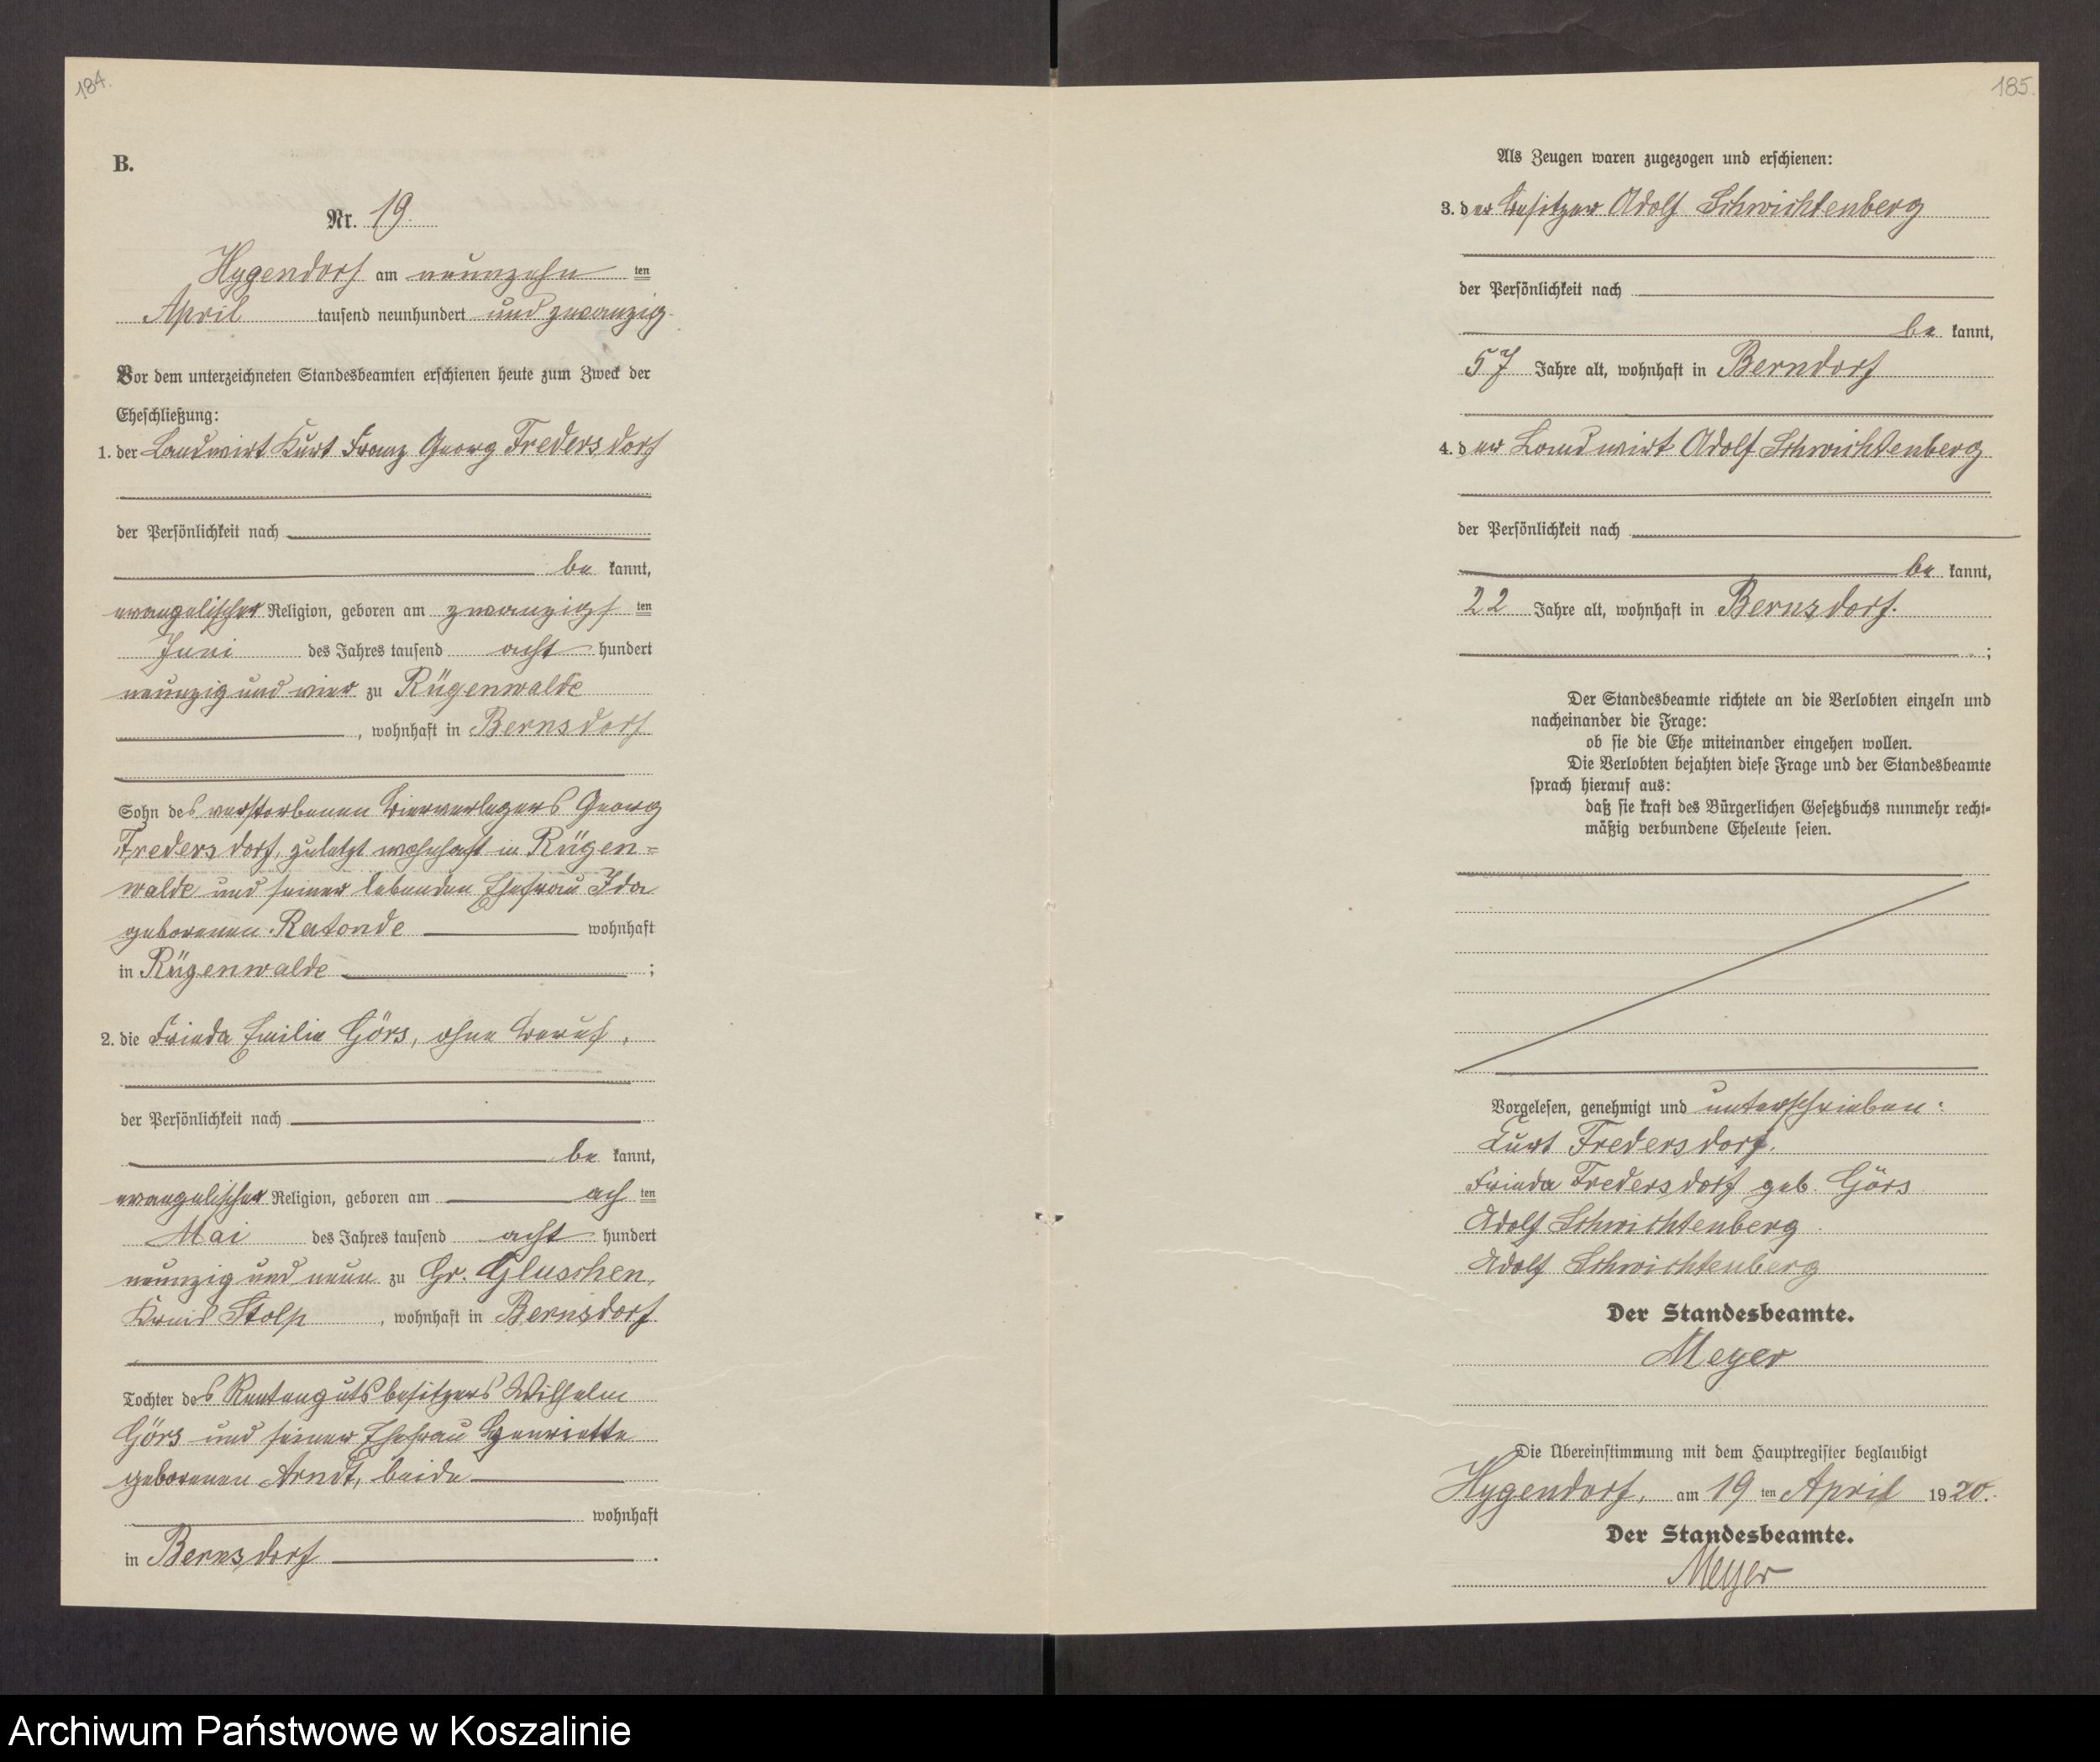 184.
B.
Nr. 19.
Hygendorf am neunzehn ten
April tausend neunhundert und zwanzig.
Vor dem unterzeichneten Standesbeamten erschienen heute zum Zweck der
Eheschließung:
1. der Landwirt Kurt Franz Georg Fredersdorf
der Persönlichkeit nach
be kannt,
evangelischer Religion, geboren am zwanzigs ten
Juni des Jahres tausend acht hundert
neunzig und vier zu Rügenwalde
, wohnhaft in Bernsdorf
Sohn des verstorbenen Bierverlegers Georg
Fredersdorf, zuletzt wohnhaft in Rügen=
walde und seiner lebenden Ehefrau Ida
geborenen Ratonde wohnhaft
in Rügenwalde ;
2. die Frieda Emilie Görs, ohne Beruf,
der Persönlichkeit nach
be kannt,
evangelischer Religion, geboren am ach ten
Mai des Jahres tausend acht hundert
neunzig und neun zu Gr. Gluschen,
Kreis Stolp , wohnhaft in Bernsdorf
Tochter des Rentengutsbesitzers Wilhelm
Görs und seiner Ehefrau Henriette
geborenen Arndt, beide
wohnhaft
in Bernsdorf .
185.
Als Zeugen waren zugezogen und erschienen:
3. der Besitzer Adolf Schwichtenberg
der Persönlichkeit nach
be kannt,
57 Jahre alt, wohnhaft in Berndorf
4. der Landwirt Adolf Schwichtenberg
der Persönlichkeit nach
be kannt,
22 Jahre alt, wohnhaft in Bernsdorf.
;
Der Standesbeamte richtete an die Verlobten einzeln und
nacheinander die Frage:
ob sie die Ehe miteinander eingehen wollen.
Die Verlobten bejahten diese Frage und der Standesbeamte
sprach hierauf aus:
daß sie kraft des Bürgerlichen Gesetzbuchs nunmehr recht-
mäßig verbundene Eheleute seien.
Vorgelesen, genehmigt und unterschrieben:
Kurt Fredersdorf.
Frieda Fredersdorf geb. Görs
Adolf Schwichtenberg
Adolf Schwichtenberg
Der Standesbeamte.
Meyer
Die Übereinstimmung mit dem Hauptregister beglaubigt
Hygendorf, am 19 ten April 1920.
Der Standesbeamte.
Meyer
Archiwum Państwowe w Koszalinie